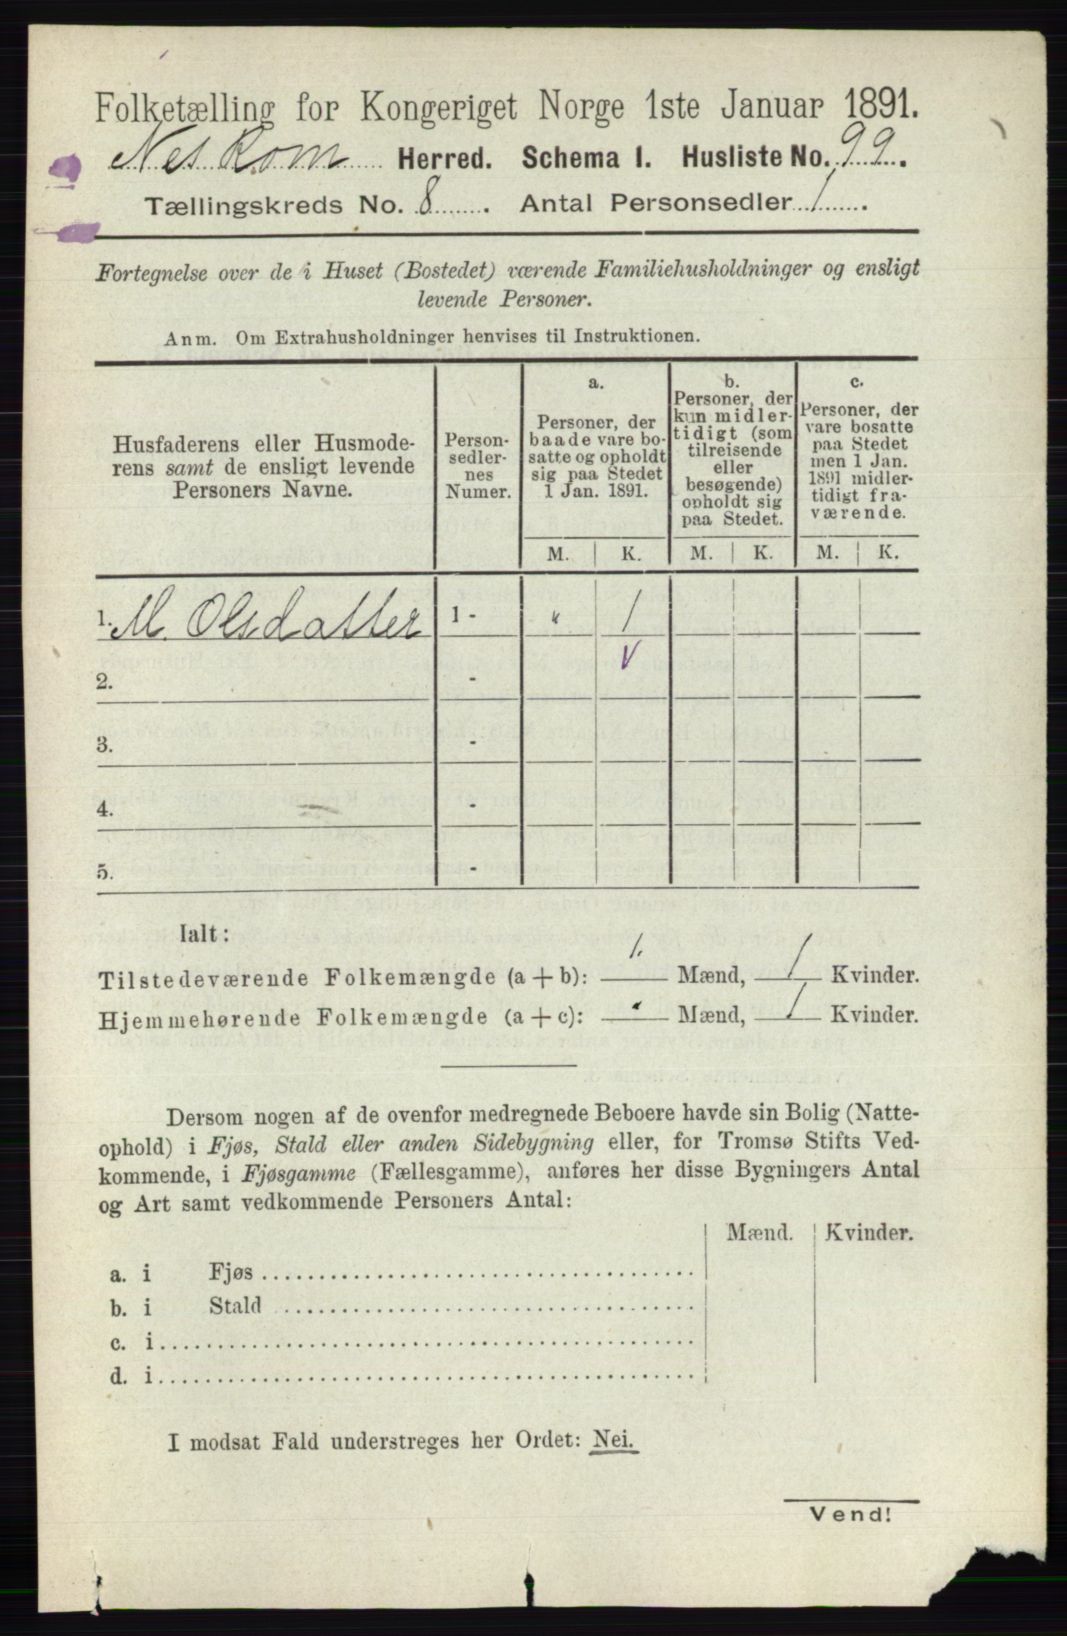 Folketælling for Kongeriget Norge 1ste Januar 1891.
Nes Kom Herred. Schema 1. Husliste No. 99.
Tællingskreds No. 8. Antal Personsedler 1.
Fortegnelse over de i Huset (Bostedet) værende Familiehusholdninger og ensligt
levende Personer.
Anm. Om Extrahusholdninger henvises til Instruktionen.
Husfaderens eller Husmode-
rens samt de ensligt levende
Personers Navne.
Person-
sedler-
nes
Numer.
a.
Personer, der
baade vare bo-
satte og opholdt
sig paa Stedet
1 Jan. 1891.
b.
Personer, der
kun midler-
tidigt (som
tilreisende
eller
besøgende)
opholdt sig
paa Stedet.
c.
Personer, der
vare bosatte
paa Stedet
men 1 Jan.
1891 midler-
tidigt fra-
værende.
M. K. M. K. M. K.
1. M. Olsdatter 1 - " 1
2. -
3. -
4. -
5. -
Ialt:
Tilstedeværende Folkemængde (a + b): Mænd, 1 Kvinder.
Hjemmehørende Folkemængde (a + c): " Mænd, 1 Kvinder.
Dersom nogen af de ovenfor medregnede Beboere havde sin Bolig (Natte-
ophold) i Fjøs, Stald eller anden Sidebygning eller, for Tromsø Stifts Ved-
kommende, i Fjøsgamme (Fællesgamme), anføres her disse Bygningers Antal
og Art samt vedkommende Personers Antal:
Mænd. Kvinder.
a. i Fjøs
b. i Stald
c. i
d. i
I modsat Fald understreges her Ordet: Nei.
Vend!